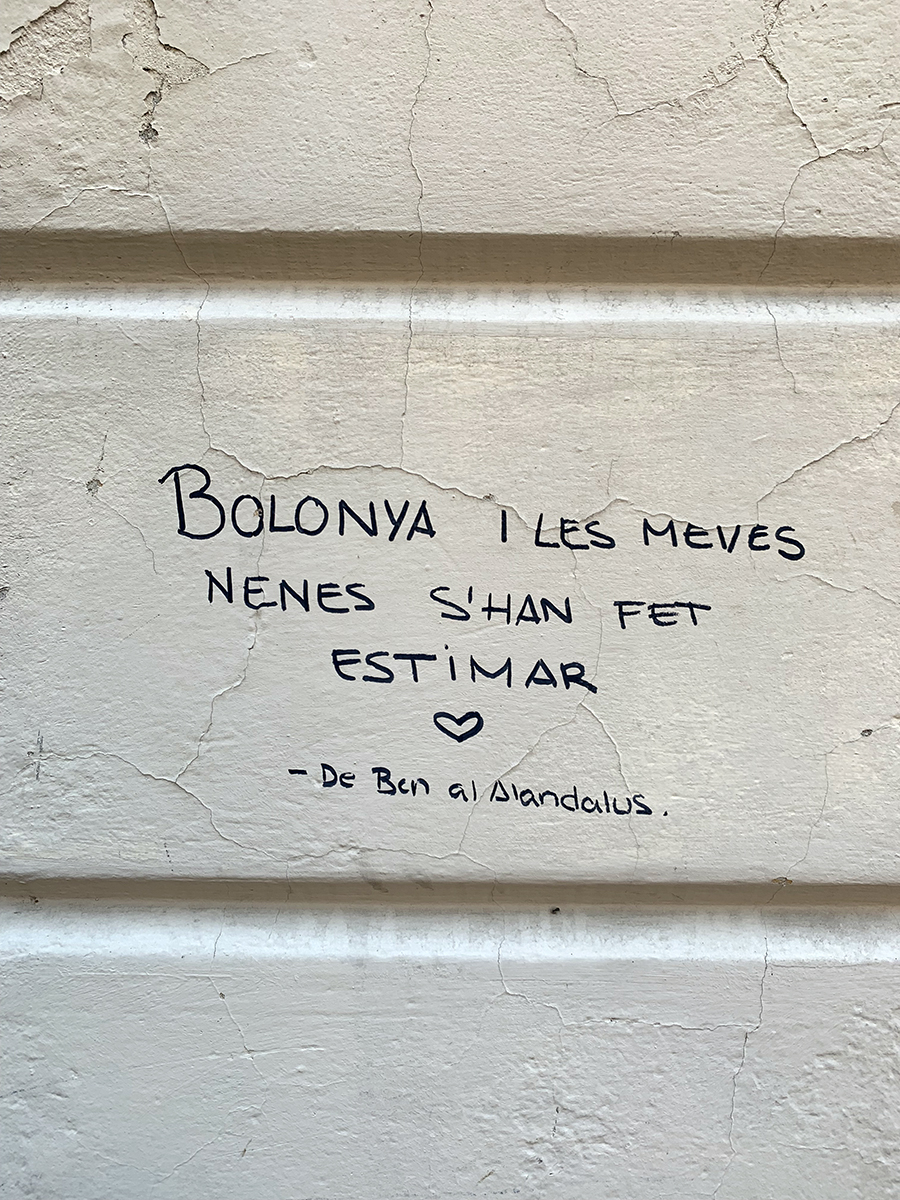 BOLONYA I LES MEVES
NENES S'HAN FET
ESTIMAR
♡
- De Ben al Alandalus.